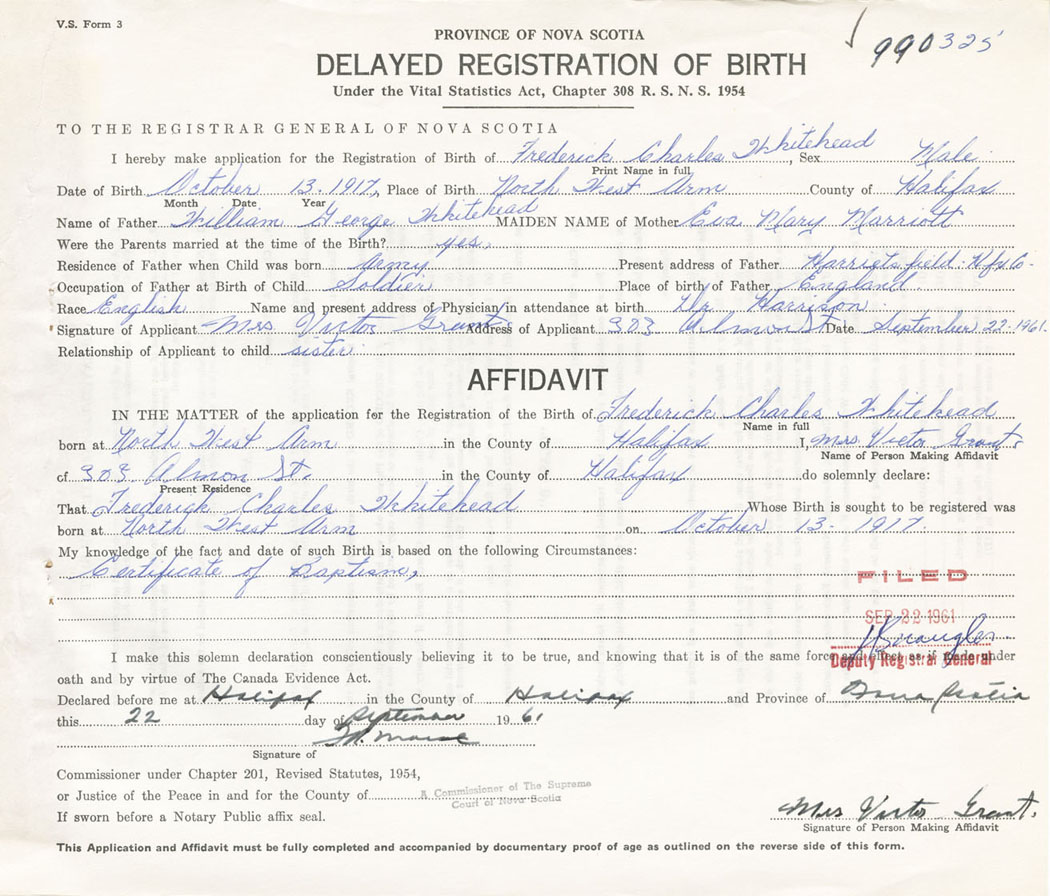 V.S. Form 3
990325
PROVINCE OF NOVA SCOTIA
DELAYED REGISTRATION OF BIRTH
Under the Vital Statistics Act, Chapter 308 R. S. N. S. 1954
TO THE REGISTRAR GENERAL OF NOVA SCOTIA
I hereby make application for the Registration of Birth of Frederick Charles Whitehead, Sex Male
Print Name in full
Date of Birth October 13. 1917, Place of Birth North West Arm County of Halifax
Month Date Year
Name of Father William George Whitehead MAIDEN NAME of Mother Eva Mary Marriott
Were the Parents married at the time of the Birth? yes.
Residence of Father when Child was born Army Present address of Father Harrietsfield. Hfx Co.
Occupation of Father at Birth of Child Soldier Place of birth of Father England
Race English Name and present address of Physician in attendance at birth Dr Harrison
Signature of Applicant Mrs Victor Grant Address of Applicant 303 Almon St Date September 22. 1961.
Relationship of Applicant to child sister
AFFIDAVIT
IN THE MATTER of the application for the Registration of the Birth of Frederick Charles Whitehead
Name in full
born at North West Arm in the County of Halifax I, Mrs. Victor Grant.
Name of Person Making Affidavit
of 303 Almon St. in the County of Halifax do solemnly declare:
Present Residence
That Frederick Charles Whitehead Whose Birth is sought to be registered was
born at North West Arm on October 13- 1917.
My knowledge of the fact and date of such Birth is based on the following Circumstances:
Certificate of Baptism,
FILED
SEP 22 1961
Deputy Registrar General
I make this solemn declaration conscientiously believing it to be true, and knowing that it is of the same force and effect as if made under
oath and by virtue of The Canada Evidence Act.
Declared before me at Halifax in the County of Halifax and Province of Nova Scotia
this 22 day of September 1961
Signature of
Commissioner under Chapter 201, Revised Statutes, 1954,
or Justice of the Peace in and for the County of
A Commissioner of The Supreme
Court of Nova Scotia
If sworn before a Notary Public affix seal.
Mrs Victor Grant.
Signature of Person Making Affidavit
This Application and Affidavit must be fully completed and accompanied by documentary proof of age as outlined on the reverse side of this form.